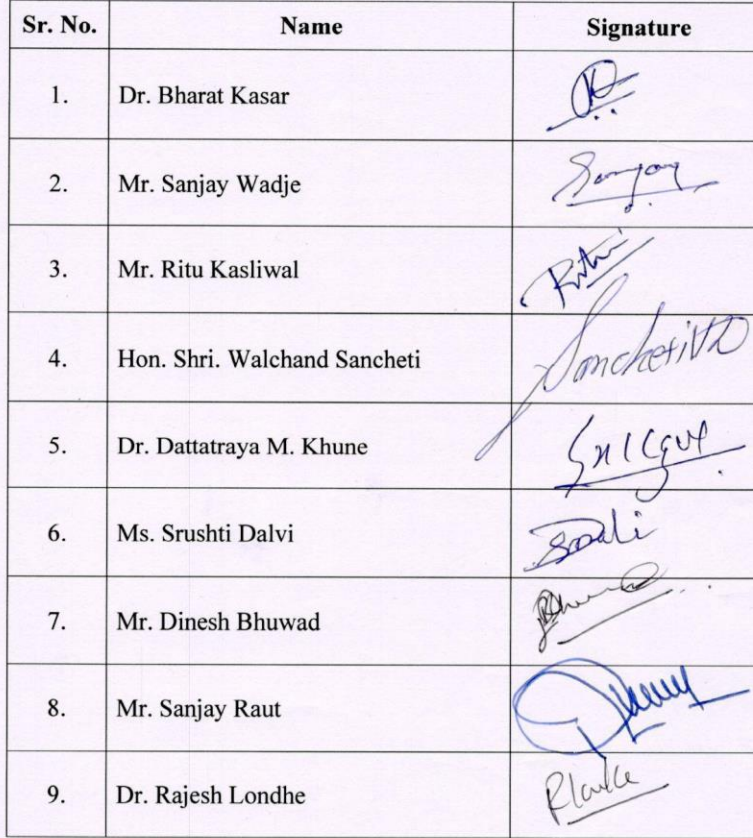 Sr. No. Name Signature
1. Dr. Bharat Kasar
2. Mr. Sanjay Wadje Sanjay
3. Mr. Ritu Kasliwal Ritu
4. Hon. Shri. Walchand Sancheti Sanchetivd
5. Dr. Dattatraya M. Khune
6. Ms. Srushti Dalvi
7. Mr. Dinesh Bhuwad
8. Mr. Sanjay Raut
9. Dr. Rajesh Londhe